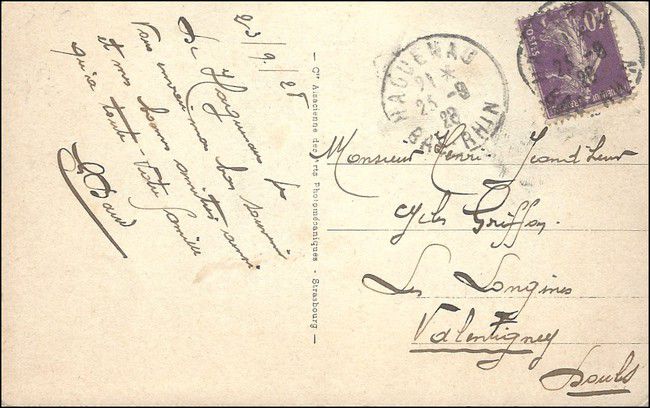 23/9/28
De Haguenau je
Vous envoie mon bon souvenir
et mes bonnes amitiés ainsi
qu'à toute votre famille
Cie Alsacienne des Arts Photomécaniques - Strasbourg
HAGUENAU
21 *
23 - 9
28
BAS-RHIN
POSTES
40c
Monsieur Henri Jeandheur
Cycles Griffon
Les Longines
Valentigney
Doubs